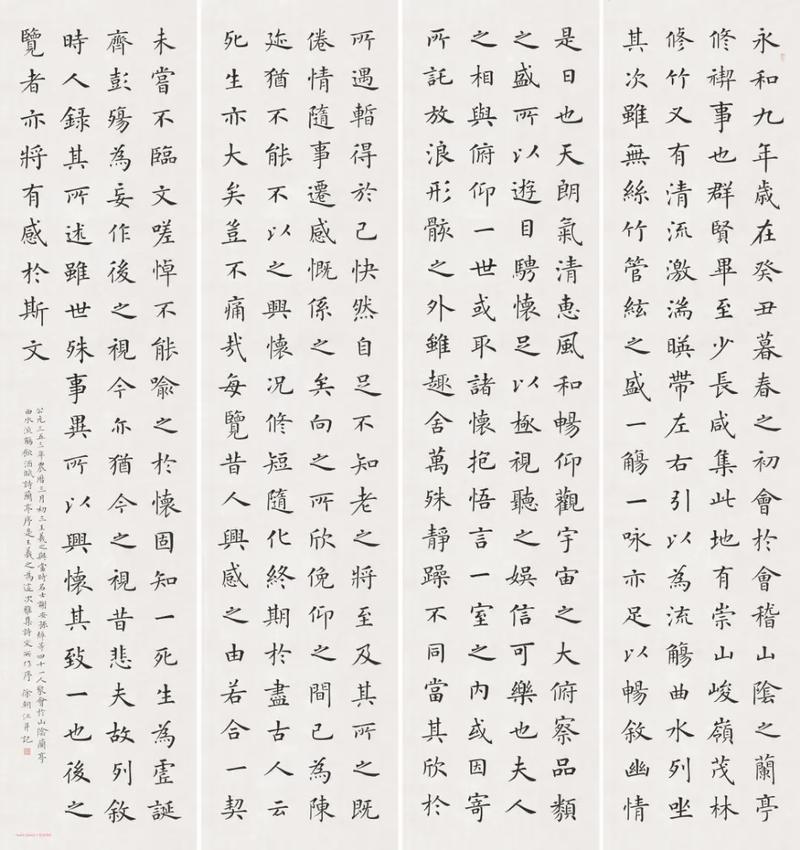 永和九年歲在癸丑暮春之初會於會稽山陰之蘭亭
修禊事也群賢畢至少長咸集此地有崇山峻嶺茂林
修竹又有清流激湍暎帶左右引以為流觴曲水列坐
其次雖無絲竹管絃之盛一觴一咏亦足以暢敘幽情
是日也天朗氣清惠風和暢仰觀宇宙之大俯察品類
之盛所以遊目騁懷足以極視聽之娛信可樂也夫人
之相與俯仰一世或取諸懷抱悟言一室之內或因寄
所託放浪形骸之外雖趣舍萬殊靜躁不同當其欣於
所遇暫得於己快然自足不知老之將至及其所之既
倦情隨事遷感慨係之矣向之所欣俛仰之間已為陳
迹猶不能不以之興懷況修短隨化終期於盡古人云
死生亦大矣豈不痛哉每覽昔人興感之由若合一契
未嘗不臨文嗟悼不能喻之於懷固知一死生為虛誕
齊彭殤為妄作後之視今亦猶今之視昔悲夫故列敘
時人録其所述雖世殊事異所以興懷其致一也後之
覽者亦將有感於斯文
公元三五三年農曆三月初三王羲之與當時名士謝安孫綽等四十一人聚會於山陰蘭亭
曲水流觴飲酒賦詩蘭亭序是王羲之為這次雅集詩文所作序 徐朝江并記